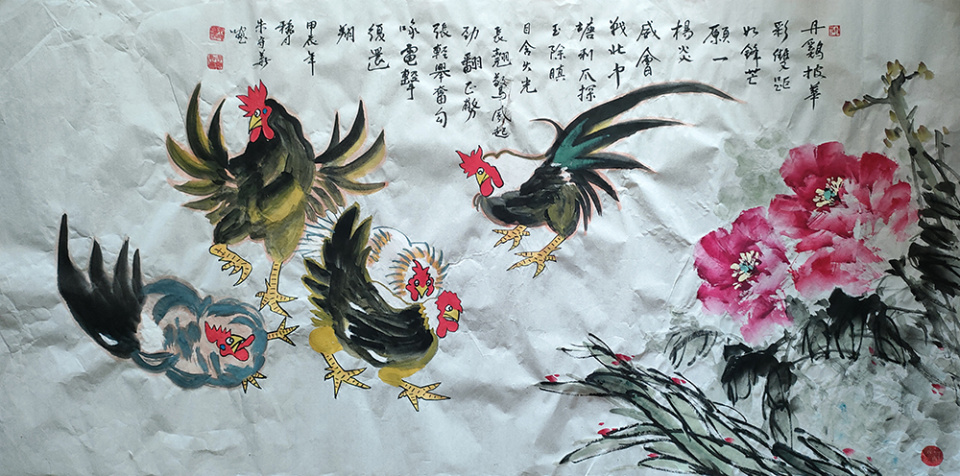 丹鷄披華
彩雙距
如鋒芒
願一
楊炎
威會
戰此中
塘利爪探
玉除瞋
目含火光
長翹驚風起
勁翮正敷
張輕舉奮勾
喙電擊
復還
翔
甲辰年